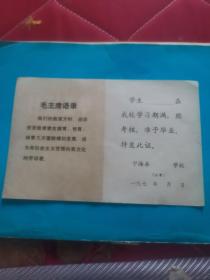 毛主席语录
我们的教育方针，应该
使受教育者在德育、智育、
体育几方面都得到发展，成
为有社会主义觉悟的有文化
的劳动者。
学生 在
我校学习期满，经
考核，准予毕业，
特发此证。
宁海县 学校
一九七 年 月 日